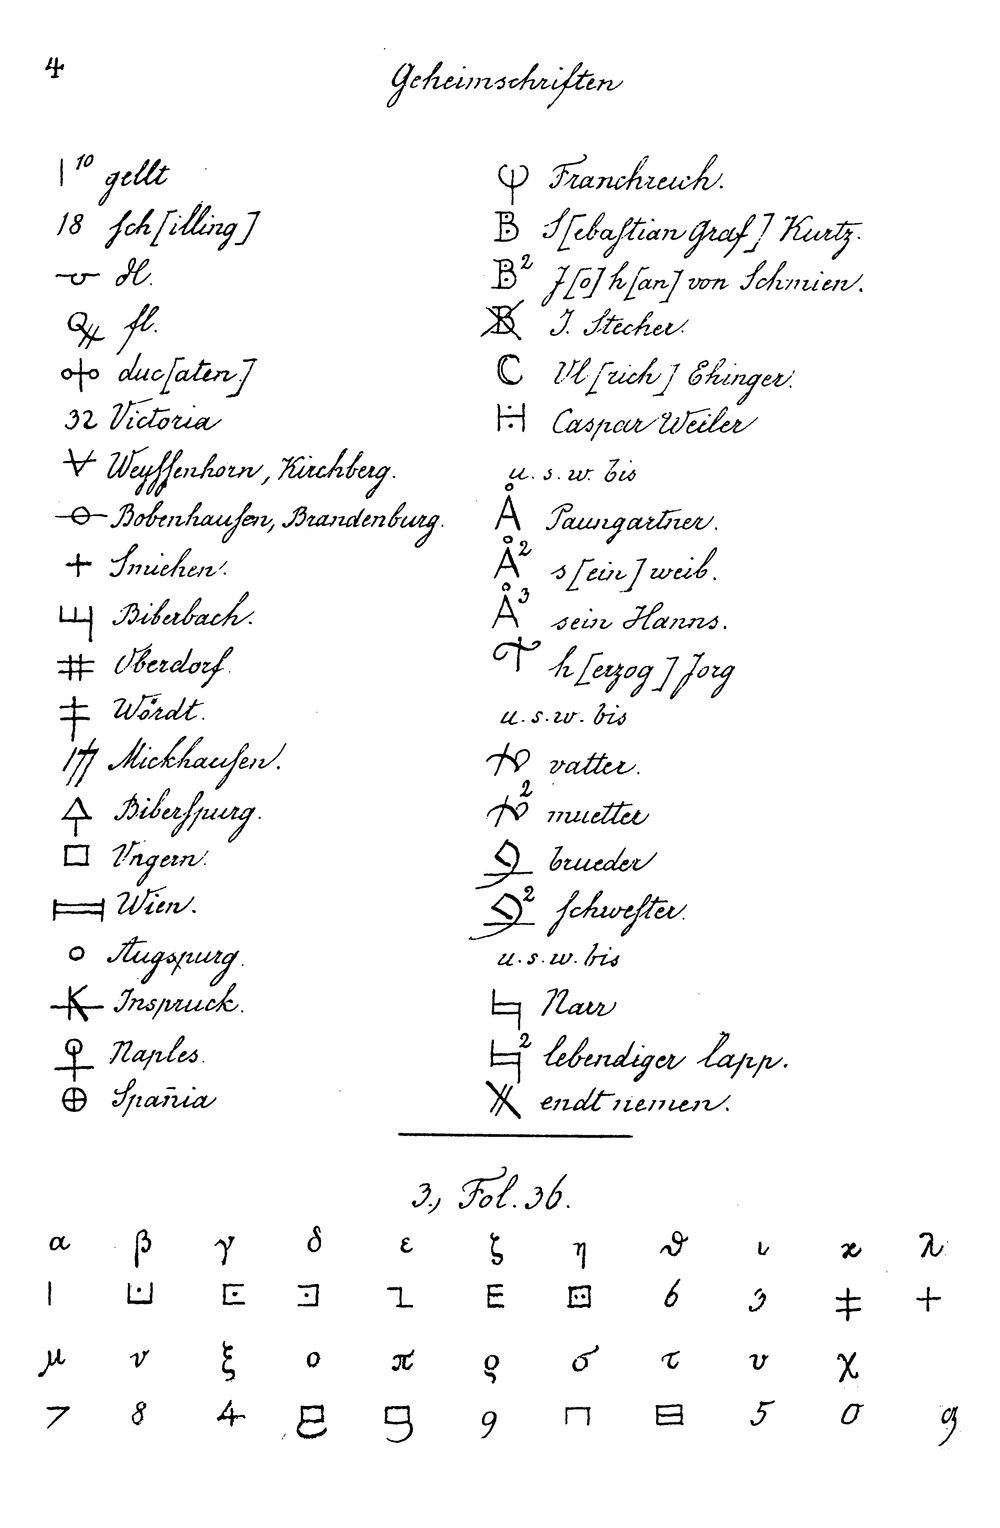 4
Geheimschriften
|10 gellt
18 sch[illing]
dl.
fl.
duc[aten.]
32 Victoria
Weyssenhorn, Kirchberg.
Bobenhausen, Brandenburg.
+ Smiehen.
Biberbach.
Oberdorf.
Wördt.
Mickhausen.
Biberspurg.
□ Vngern.
Wien.
○ Augspurg.
K Inspruck.
Naples.
⊕ Spañia
Franchreich.
B S[ebastian Graf] Kurtz.
B2 J[o]h[an] von Schmien.
B J. Stecher.
C Vl[rich] Ehinger.
Caspar Weiler
u. s. w. bis
Å Paungartner.
Å2 s[ein] weib.
Å3 sein Hanns.
h[erzog] Jorg
u. s. w. bis
vatter.
2 muetter
brueder
2 schwester.
u. s. w. bis
Narr
2 lebendiger lapp.
endt nemen.
3., Fol. 36.
α β γ δ ε ζ η ϑ ι κ λ
| 6 3 ‡ +
μ ν ξ ο π ρ σ τ υ χ
7 8 4 9 5